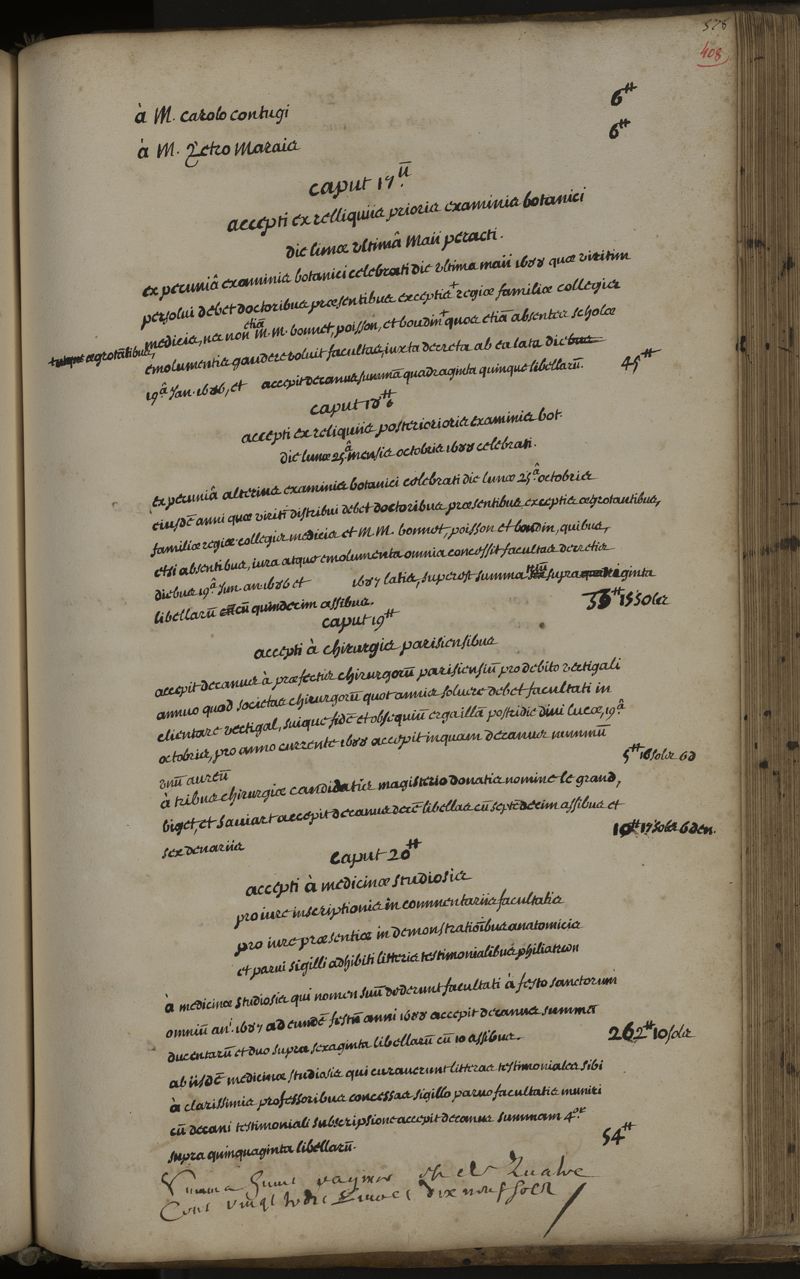 578
408
à M. carolo contugi 6ᵗᵗ
à M. Petro Maraia 6ᵗᵗ
caput 17ū.
accepti ex relliquiis prioris examinis botanici
die lunæ ultimâ Maii peracti.
ex pecuniâ examinis botanici celebrati die ultima maii 1688 quæ viritim
persolui debet doctoribus præsentibus exceptis + regiæ familiæ collegis
medicis, nec non etiā M.M. bonnet, poisson, et boudin + quos etiā absentes scholæ
+ usque ægrotātibus,
emolumentis gaudere voluit facultas, iuxta decreta ab ea lata diebus
19â Jan. 1686, et accepit decanus summā quadraginta quinque libellarū. 45ᵗᵗ
caput 18ᵗᵗ
accepti ex reliquiis posterioris examinis bot.
die lunæ 25â mensis octobris 1688 celebrati.
ex pecuniâ alterius examinis botanici celebrati die lunæ 25â octobris
eiusdē anni quæ viritī distribui debet doctoribus præsentibus exceptis ægrotantibus,
familiæ regiæ collegis medicis et M.M. bonnet, poisson et boudin, quibus,
etsi absentibus, iura atque emolumenta omnia concessit facultas decretis
diebus 19â Jun. an. 1686 et 1687 latis, superest summa supra quadraginta
libellarū cū quindecim assibus. 15 solz
caput 19ᵗᵗ
accepti à chirurgis parisiensibus
accepit decanus à præfectis chirurgorū parisiensiū pro debito vectigali
annuo quod societas chirurgorū quot annis soluere debet facultati in
clientare vectigal, suique fidē et obsequiū erga illā postridie divi lucæ, 19â
octobris, pro anno currente 1688 accepit inquam decanus nummū
unū aureū 5ᵗᵗ 16 solz 6d
à tribus chirurgiæ candidatis magisterio donatis nomine le grand,
biget, et sauiart accepit decanus decē libellas cū septēdecim assibus et
sex denariis 10ᵗᵗ 17 solz 6 den.
caput 20ᵗᵗ
accepti à medicinæ studiosis
pro iure inscriptionis in commentariis facultatis
pro iure præsentiæ in demonstratiōibus anatomicis
et parui sigilli adhibiti litteris testimonialibus philiatrωn
à medicinæ studiosis qui nomen suū dederunt facultati à festo sanctorum
omniū anⁱ. 1687 ad eundē festū anni 1688 accepit decanus summā
ducentarū et duo supra sexaginta libellarū cū 10 assibus. 262ᵗᵗ 10 solz
ab iisdē medicinæ studiosis qui curauerunt litteras testimoniales sibi
à clarissimis professoribus concessas sigillo paruo facultatis muniri
cū decani testimoniali subscriptione accepit decanus summam 4ᵒʳ
supra quinquaginta libellarū. 54ᵗᵗ
Summa huius paginæ Quatre
Cent vingt huit Livres dix neuf solz